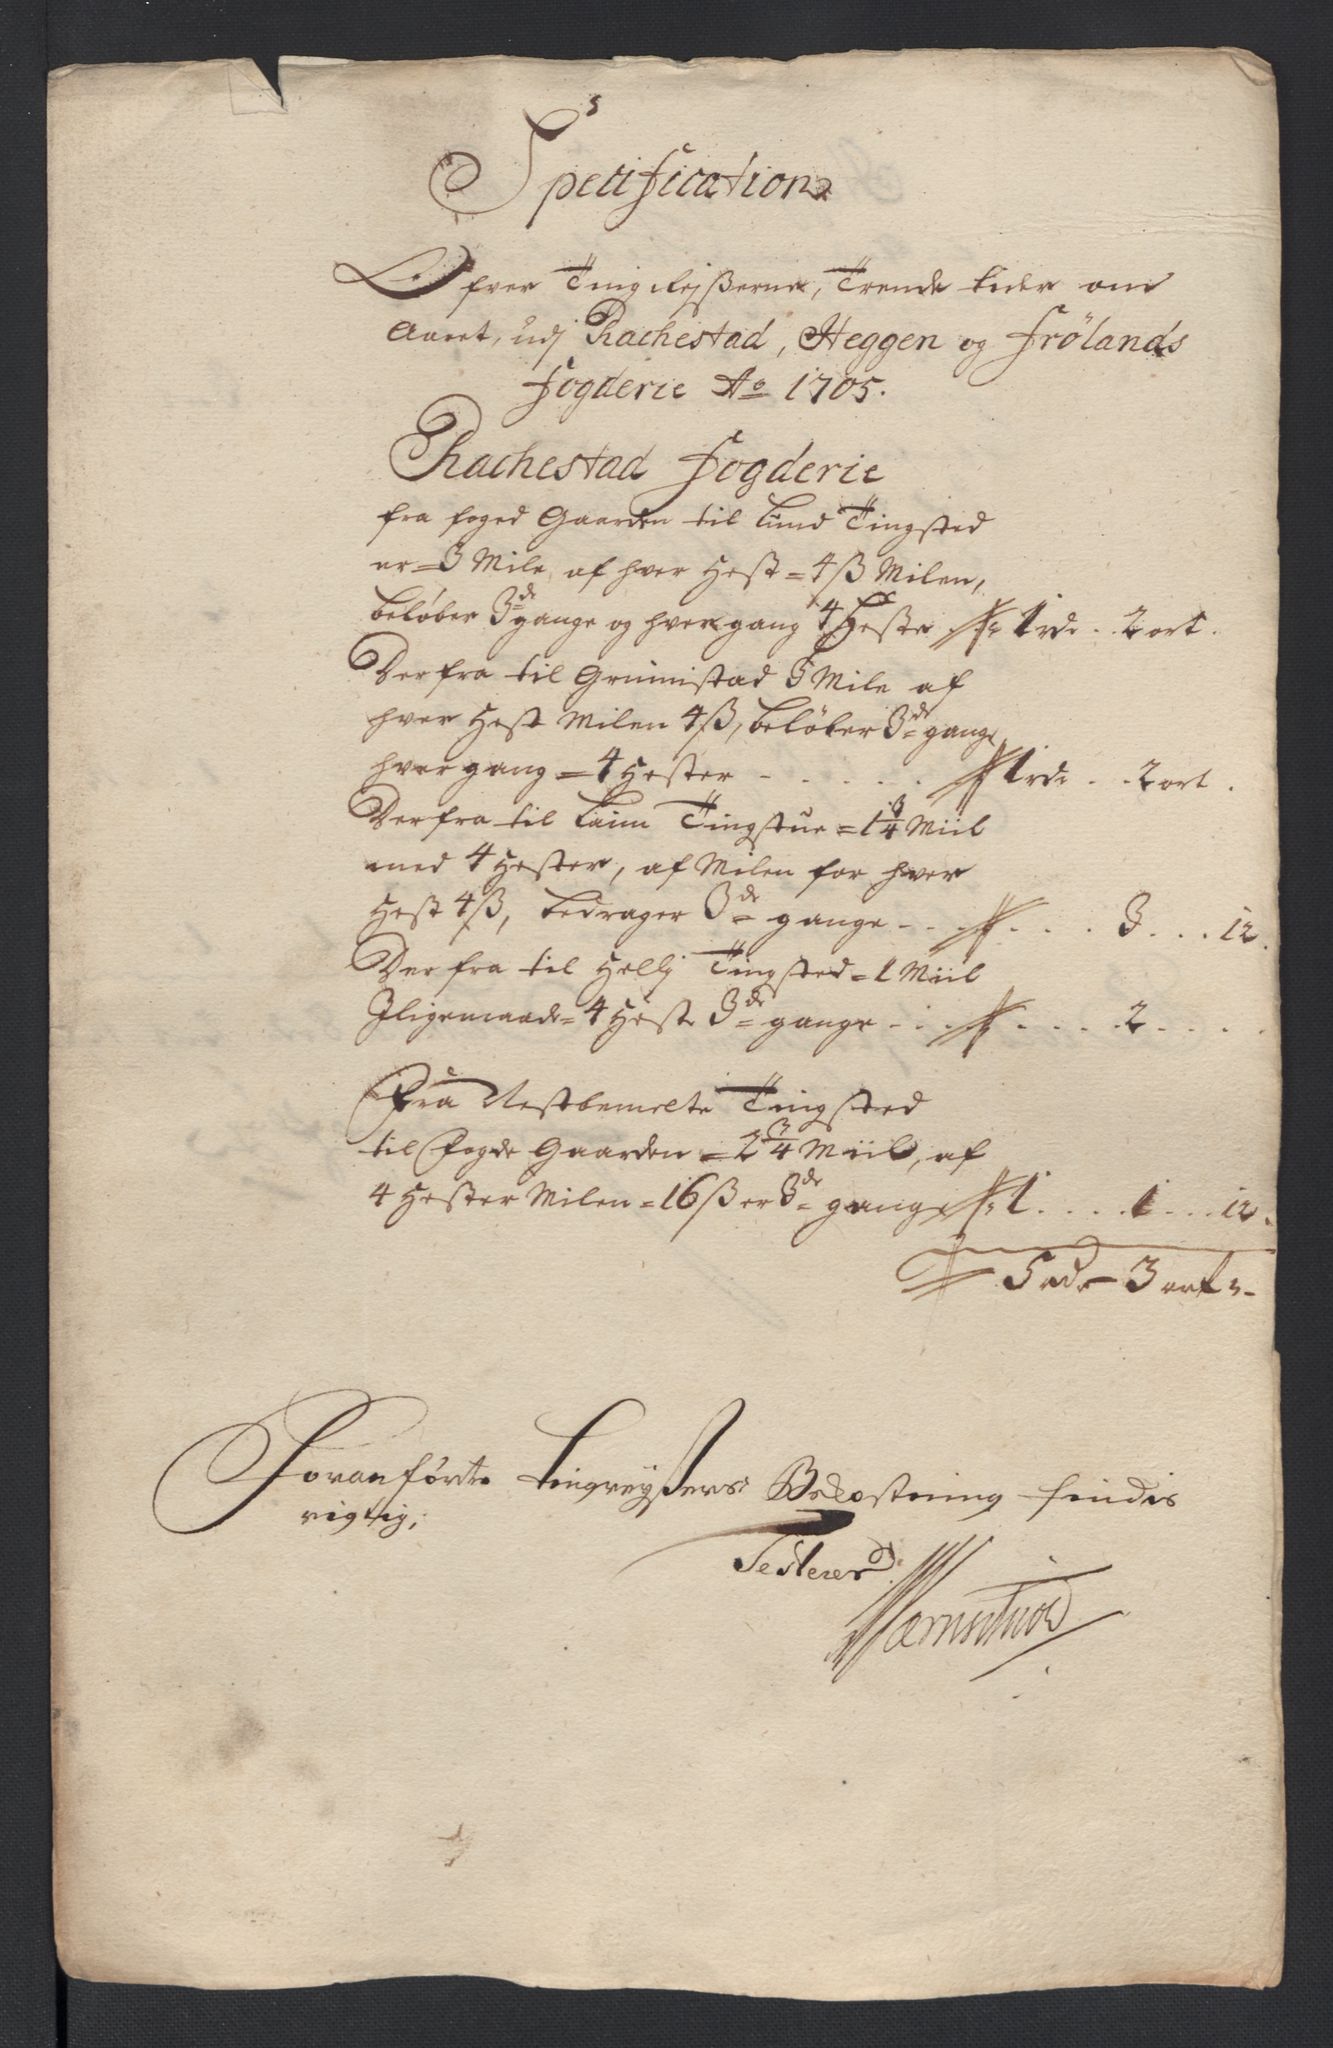 Specification
Ofver Tingreisserne, Trende tider om
Aaret, udj Rachestad, Heggen og Frölands
Fogderie Ao 1705.
Rachestad Fogderie
fra foged Gaarden til Lund Tingsted
er = 3 Mile, af hver Hest = 4 ß Milen,
beløber 3de gange og hver gang 4 Heste 1 rdr . 2 ort .
Der fra til Grimstad 3 Mile af
hver Hest Milen 4 ß, beløber 3de gange
hver gang = 4 Hester - . . . . . 1 rdr . . 2 ort .
Der fra til Laim Tingstue = 1 3/4 Miil
med 4 Hester, af Milen for hver
Hest 4 ß, bedrager 3de gange - . . . . . . 3 . . . 12 .
Der fra til Hellj Tingsted = 1 Miil
Iligemaade = 4 Heste 3de gange - . . . . . . 2 . . . .
Fra Nestbemelte Tingsted
til Fogde Gaarden = 2 3/4 Miil, af
4 Hester Milen = 16 ß er 3de gange 1 . . . . 1 . . . 12 .
5 rdr - 3 ort -
Foranførte Tingreyssers Bekostning findis
rigtig;
Testerer